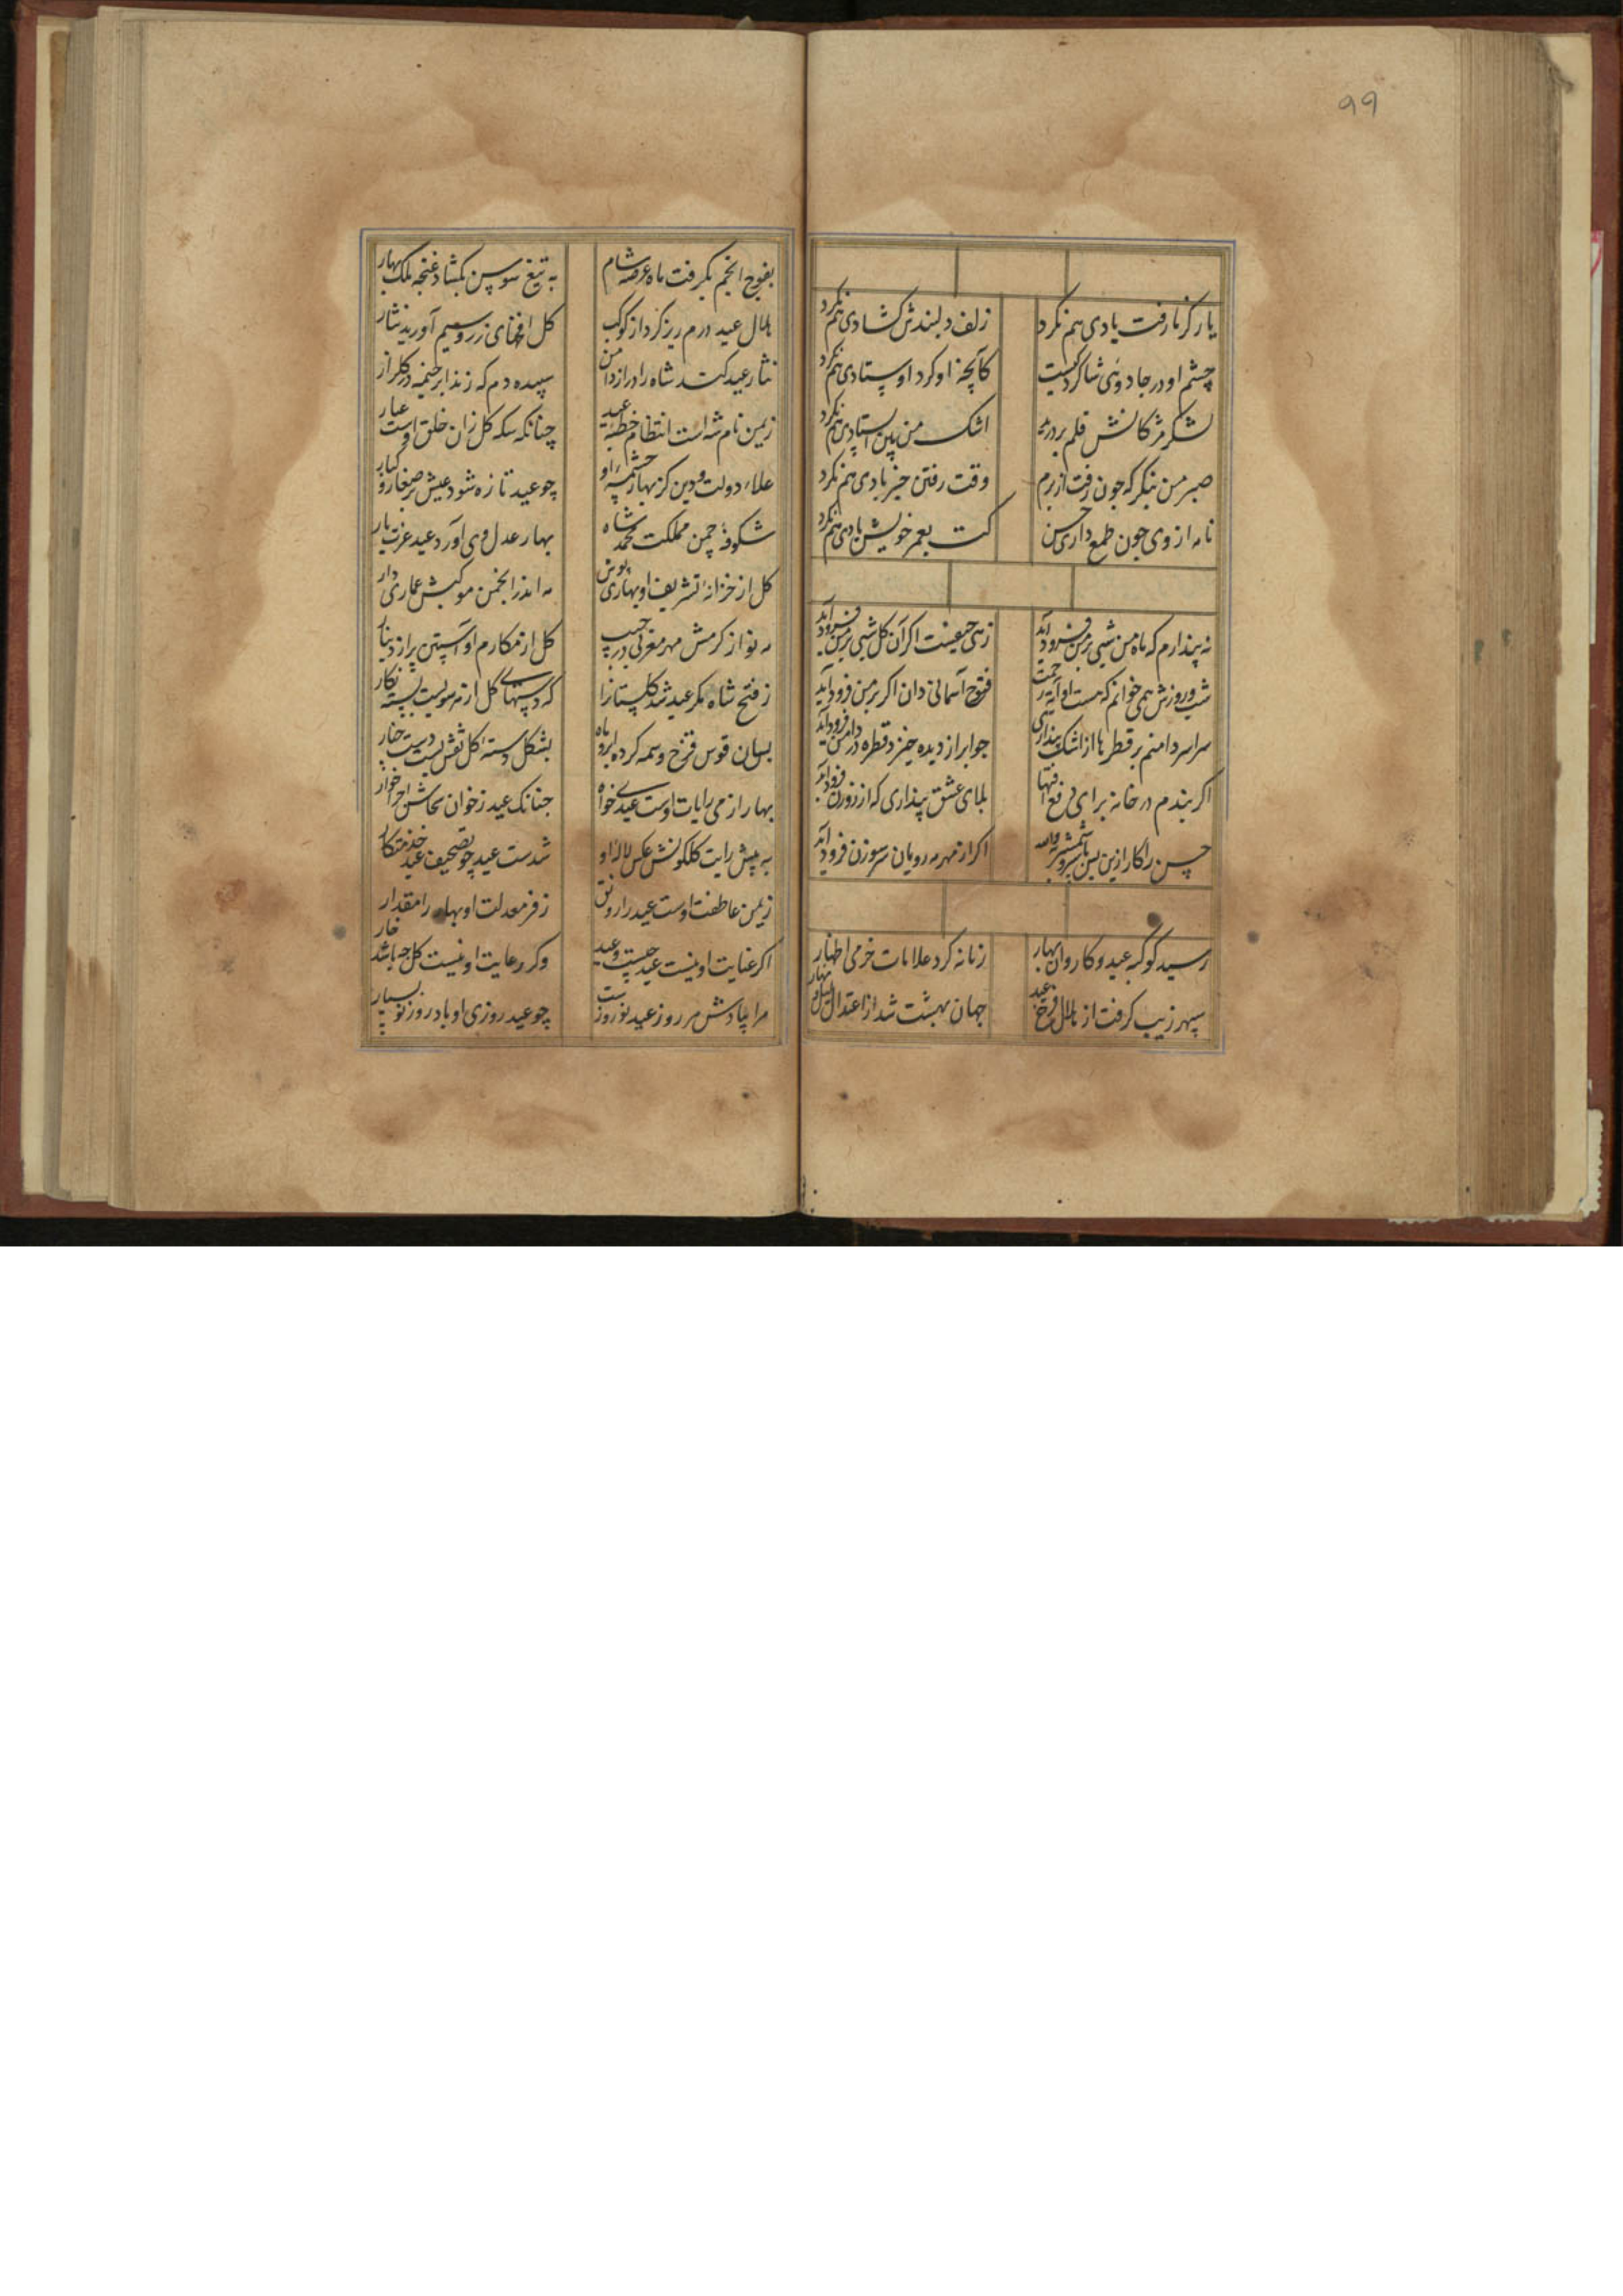 ۹۹
یار کز ما رفت یادی هم نکرد
زلف دلبندش کشادی هم نکرد
چشم او در جادوئی شاکرد کیست
کانچه او کرد اوستادی هم نکرد
لشکر مژکانش قلم بردرید
اشک من بین ایستادی هم نکرد
صبر من بنکر که چون رفت از برم
وقت رفتن خیر بادی هم نکرد
نامه از وی چون طمع داری حسن
کت بعمر خویش یادی هم نکرد
نه پندارم که ماه من شبی بر من فرود آید
زهی اکر آن کل شبی بر من فرود آید
شب و روزش همی خوانم که هست او آیه رحمت
فتوح آسمانی دان اکر بر من فرود آید
سراسر دامنم بر قطرها از اشک پنداری
چو ابر از دیده خیزد قطره در دامن فرود آید
اکر بندم در خانه برای دفع آفتها
بلای عشق پنداری که از روزن فرود آید
حسن را کار ازین
اکر از مهر مه رویان سر سوزن فرود آید
رسید کوکبه عید و کاروان بهار
زمانه کرد علامات خرمی اظهار
سپهر زیب کرفت از هلال فرخ عید
جهان بهشت شد از اعتدال لیل و نهار
بفوج انجم بکرفت ماه عرصه شام
به تیغ سوسن بکشاد غنچه ملک بهار
هلال عید درم ریز کرد از کوکب
کل زر و سیم آورید نثار
نثار عید کند شاه را دراز دامن
سپیده دم که زند ابر خیمه در کلزار
زیمن نام شه است انتظام خطبه عید
چنانکه سکه کل زان خلق اوست عیار
علاء دولت و دین کز بهار چشمه او
چو عید تازه شود عیش بر صغار و کبار
شکوفه چمن مملکت محمد شاه
بهار عدل وی آورد عید عزت بار
کل از خزانه تشریف او بهاری پوش
مه اندر انجمن موکبش عماری دار
مه نو از کرمش مهر مغربی در جیب
کل از مکارم او آستین پر از دینار
ز فتح شاه مکر عید شد کلستانرا
که دستهای کل از هر سویست بسته نکار
بسان قوس قزح وسمه کرده ابرو ماه
بشکل دسته کل نقش بست دست چنار
بهار از می رایات اوست عیدی خواه
چنانک عید ز خوان سخاش اجرا خوار
به پیش رایت کلکونش عکس لاله او
شدست عید چو تصحیف عید خذمتکار
زیمن عاطفت اوست عید را رونق
ز فر معدلت او بهار را مقدار
اکر عنایت او نیست عید چیست وعید
وکر رعایت او نیست کل چه باشد خار
مرا پادش هر روز عید نوروزست
چو عید روزی او باد روز نو بسیار